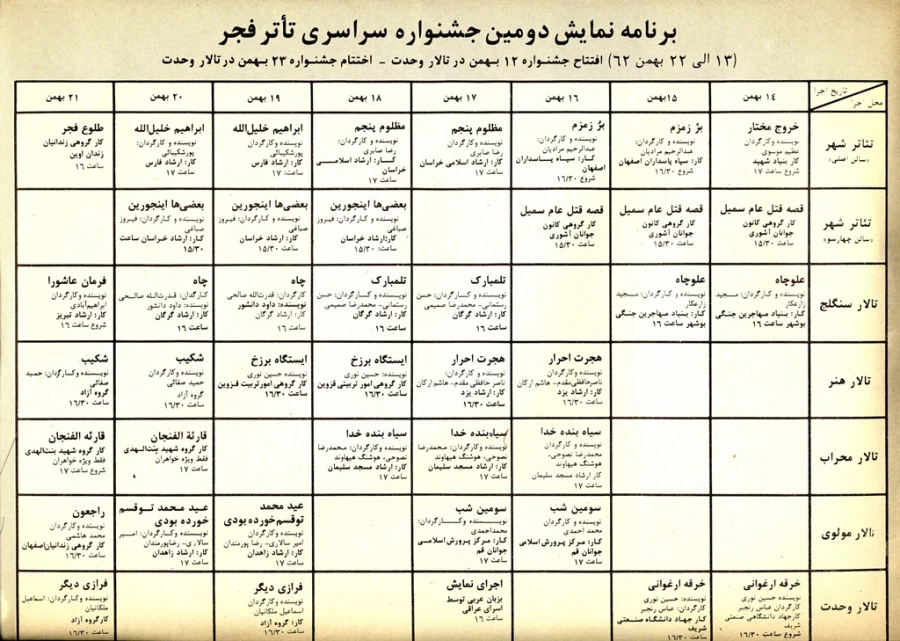 برنامه نمایش دومین جشنواره سراسری تأتر فجر
(۱۳ الی ۲۲ بهمن ۶۲) افتتاح جشنواره ۱۲ بهمن در تالار وحدت - اختتام جشنواره ۲۳ بهمن در تالار وحدت
تاریخ اجرا
محل اجرا
۱۴ بهمن
۱۵ بهمن
۱۶ بهمن
۱۷ بهمن
۱۸ بهمن
۱۹ بهمن
۲۰ بهمن
۲۱ بهمن
تئاتر شهر
«سالن اصلی»
خروج مختار
نویسنده و کارگردان:
عظیم موسوی
کار بنیاد شهید
شروع ساعت ۱۷
بز زمزم
نویسنده و کارگردان:
عبدالرحیم مرادیان
کار: سپاه پاسداران اصفهان
شروع ۱۶/۳۰
بز زمزم
نویسنده و کارگردان:
عبدالرحیم مرادیان
کار: سپاه پاسداران
اصفهان
شروع ۱۶/۳۰
مظلوم پنجم
نویسنده و کارگردان:
رضا صابری
کار: ارشاد اسلامی خراسان
ساعت: ۱۷
مظلوم پنجم
نویسنده و کارگردان:
رضا صابری
کار: ارشاد اسلامی
خراسان
ساعت ۱۷
ابراهیم خلیل‌الله
نویسنده و کارگردان:
پورشکیبائی
کار: ارشاد فارس
ساعت ۱۷
ابراهیم خلیل‌الله
نویسنده و کارگردان:
پورشکیبائی
کار: ارشاد فارس
ساعت ۱۷
طلوع فجر
کار گروهی زندانیان
زندان اوین
ساعت ۱۶
تئاتر شهر
«سالن چهارسو»
قصه قتل عام سمیل
کار گروهی کانون
جوانان آشوری
ساعت ۱۵/۳۰
قصه قتل عام سمیل
کار گروهی کانون
جوانان آشوری
ساعت ۱۵/۳۰
قصه قتل عام سمیل
کار گروهی کانون
جوانان آشوری
ساعت ۱۵/۳۰
بعضی‌ها اینجورین
نویسنده و کارگردان: فیروز
صباغی
کار: ارشاد خراسان
ساعت: ۱۵/۳۰
بعضی‌ها اینجورین
نویسنده و کارگردان: فیروز
صباغی
کار: ارشاد خراسان
ساعت ۱۵/۳۰
بعضی‌ها اینجورین
نویسنده و کارگردان: فیروز
صباغی
کار: ارشاد خراسان ساعت
۱۵/۳۰
تالار سنگلج
علوجاه
نویسنده و کارگردان: مجید
زارعکار
کار: بنیاد مهاجرین جنگی
بوشهر ساعت ۱۶
علوجاه
نویسنده و کارگردان: مجید
زارعکار
کار: بنیاد مهاجرین جنگی
بوشهر ساعت ۱۶
تلمبارک
نویسنده و کارگردان: حسن
رستمانی- محمدرضا صمیمی
کار: ارشاد گرگان
ساعت ۱۶
تلمبارک
نویسنده و کارگردان: حسن
رستمانی- محمدرضا صمیمی
کار: ارشاد گرگان
ساعت ۱۶
چاه
کارگردان: قدرت‌الله صالحی
نویسنده: داود دانشور
کار: ارشاد گرگان
ساعت ۱۶
چاه
کارگدان: قدرت‌الله صالحی
نویسنده: داود دانشور
کار: ارشاد گرگان
ساعت ۱۶
فرمان عاشورا
نویسنده و کارگردان
ابراهیم‌آبادی
کار: ارشاد تبریز
شروع ساعت ۱۶
تالار هنر
هجرت احرار
نویسنده و کارگردان:
ناصر حافظی‌مقدم- هاشم ارکان
کار: ارشاد یزد
ساعت ۱۶/۳۰
هجرت احرار
نویسنده و کارگردان:
ناصر حافظی مقدم- هاشم ارکان
کار: ارشاد یزد
ساعت ۱۶/۳۰
ایستگاه برزخ
نویسنده: حسین نوری
کار گروهی امور تربیتی قزوین
ساعت ۱۶/۳۰
ایستگاه برزخ
نویسنده: حسین نوری
کار گروهی امور تربیت قزوین
ساعت ۱۶/۳۰
شکیب
نویسنده و کارگردان
حمید صفائی
گروه آزاد
ساعت ۱۶/۳۰
شکیب
نویسنده و کارگردان: حمید
صفائی
گروه آزاد
ساعت ۱۶/۳۰
تالار محراب
سیاه بنده خدا
نویسنده و کارگردان:
محمدرضا نصوحی،
هوشنگ هیهاوند
کار ارشاد مسجد سلیمان
ساعت ۱۷
سیاه بنده خدا
نویسنده و کارگردان: محمدرضا
نصوحی، هوشنگ هیهاوند
کار: ارشاد مسجد سلیمان
ساعت ۱۷
سیاه بنده خدا
نویسنده و کارگردان: محمدرضا
نصوحی، هوشنگ هیهاوند
کار: ارشاد مسجد سلیمان
ساعت ۱۷
قارئة الفنجان
کار گروه شهید بنت‌الهدی
فقط ویژه خواهران
ساعت ۱۷
قارئه الفنجان
کار گروه شهید بنت‌الهدی
فقط ویژه خواهران
شروع ساعت ۱۷
تالار مولوی
سومین شب
نویسنده و کارگردان:
محمد احمدی
کار: مرکز پرورش اسلامی
جوانان قم
ساعت ۱۷
سومین شب
نویسنده و کارگردان:
محمد احمدی
کار: مرکز پرورش اسلامی
جوانان قم
ساعت ۱۷
عید محمد
توقسم خورده بودی
نویسنده و کارگردان
امیر سالاری- رضا پورمندان
کار: ارشاد زاهدان
ساعت ۱۷
عید محمد توقسم
خورده بودی
نویسنده و کارگردان: امیر
سالاری- رضاپورمندان
کار: ارشاد زاهدان
ساعت ۱۷
راجعون
نویسنده و کارگردان:
محمد هاشمی
کار گروهی زندانیان اصفهان
ساعت ۱۶/۳۰
تالار وحدت
خرقه ارغوانی
نویسنده: حسین نوری
کارگردان عباس رنجبر
کارجهاد دانشگاهی صنعتی
شریف
شروع ساعت ۱۶/۳۰
خرقه ارغوانی
نویسنده: حسین نوری
کارگردان: عباس رنجبر
کار جهاد دانشگاه صنعتی
شریف
ساعت ۱۶/۳۰
اجرای نمایش
بزبان عربی توسط
اسرای عراقی
ساعت ۱۶
فرازی دیگر
نویسنده و کارگردان
اسماعیل ملکانیان
کار: گروه آزاد
ساعت ۱۶/۳۰
فرازی دیگر
نویسنده و کارگردان: اسماعیل
ملکانیان
کارگروه آزاد
ساعت ۱۶/۳۰